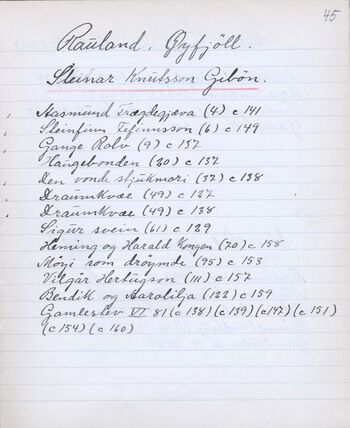 45
Rauland, Øyfjöll.
Steinar Knutsson Gibön.
Aasmund Frægdegjæva (4) c 141
Steinfinn Fefinnsson (6) c 149
Gange Rolv (9) c 137
Haugebonden (20) c 137
Den vonde stjukmori (32) c 138
Draumkvæe (49) c 127
Draumkvæe (49) c 138
Sigur svein (61) c 129
Heming og Harald Kongen (70) c 158
Möyi som dröymde (95) c 153
Vilgår Hertugson (111) c 157
Bendik og Aarolilja (122) c 159
Gamlestev VI 81 (c 138) (c 139) (c 147) (c 151)
(c 154) (c 160)